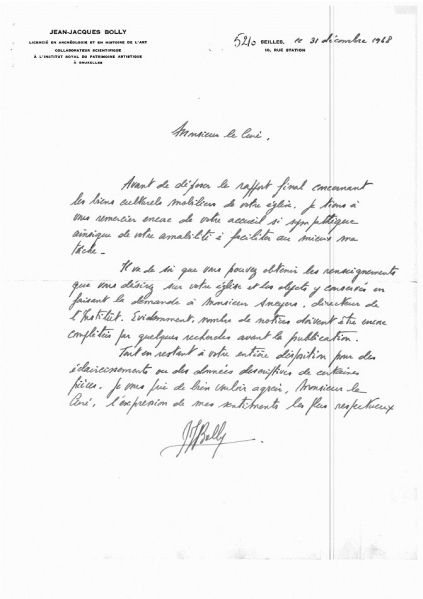 JEAN-JACQUES BOLLY
LICENCIÉ EN ARCHÉOLOGIE ET EN HISTOIRE DE L'ART
COLLABORATEUR SCIENTIFIQUE
À L'INSTITUT ROYAL DU PATRIMOINE ARTISTIQUE
À BRUXELLES
5210 SEILLES, le 31 décembre 1968
10, RUE STATION
Monsieur le Curé,
Avant de déposer le rapport final concernant
les biens culturels mobiliers de votre église, je tiens à
vous remercier encore de votre accueil si sympathique
ainsi que de votre amabilité à faciliter au mieux ma
tâche.
Il va de soi que vous pouvez obtenir les renseignements
que vous désirez sur votre église et les objets y conservés en
faisant la demande à Monsieur directeur de
l'Institut. Evidemment, nombre de notices doivent être encore
complétées par quelques recherches avant la publication.
Tout en restant à votre entière disposition pour des
éclaircissements ou des données descriptives de certaines
pièces, je vous prie de bien vouloir agréer, Monsieur le
Curé, l'expression de mes sentiments les plus respectueux
JJBolly.